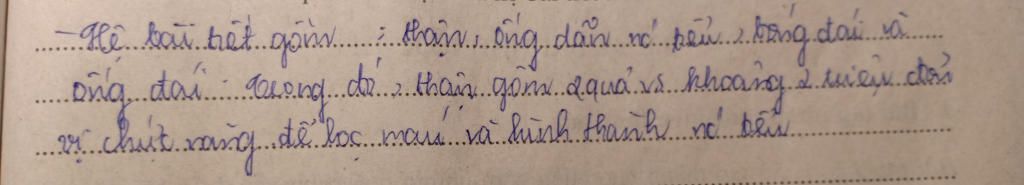 - Hệ bài tiết gồm : thận, ống dẫn nc tiểu, bóng đái và
ống đái. Trong đó, thận gồm 2 quả vs khoảng 2 triệu đơn
vị chức năng để lọc máu và hình thành nc tiểu